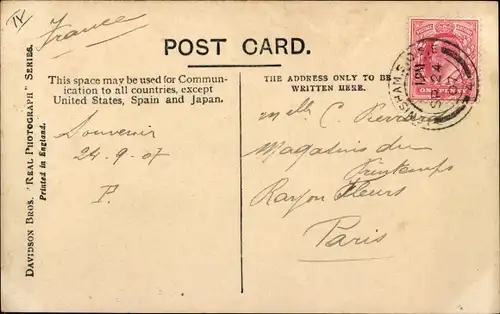 IV
France
POST CARD.
This space may be used for Commun-
ication to all countries, except
United States, Spain and Japan.
THE ADDRESS ONLY TO BE
WRITTEN HERE.
Souvenir
24-9-07
P.
Melle C.
Magasins du
Printemps
Rayon Fleurs
Paris
DAVIDSON BROS. "REAL PHOTOGRAPH" SERIES.
Printed in England.
ONE PENNY